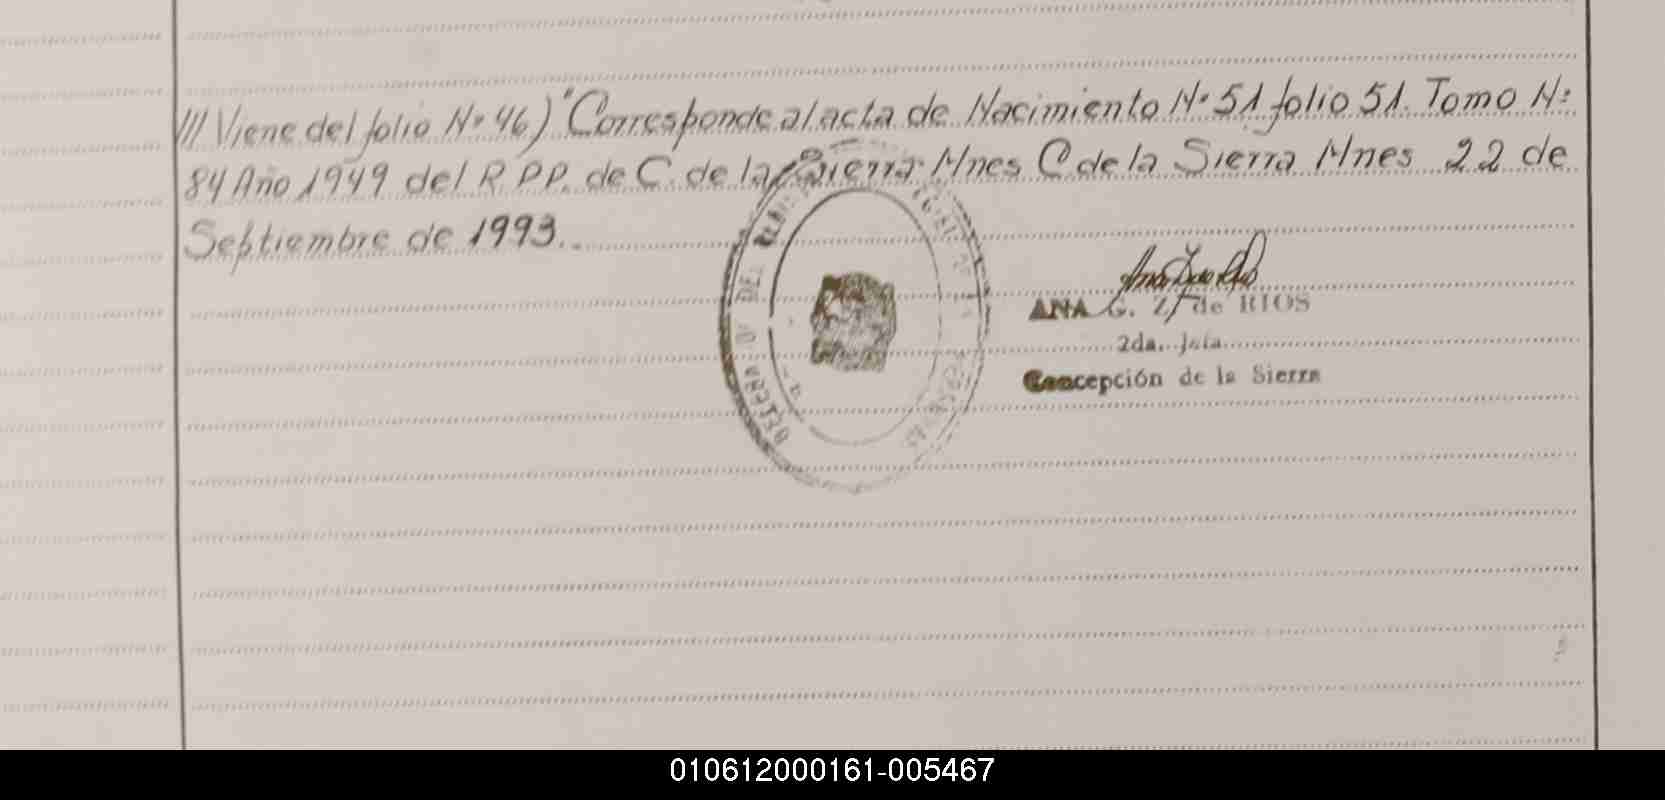 /// Viene del folio Nº 46) "Corresponde al acta de Nacimiento Nº 51 folio 51. Tomo Nº
84 Año 1949 del R.P.P. de C. de la Sierra Mnes C de la Sierra Mnes 22 de
Septiembre de 1993..
ANA G. Z. de RIOS
2da. Jefa
Concepción de la Sierra
010612000161-005467